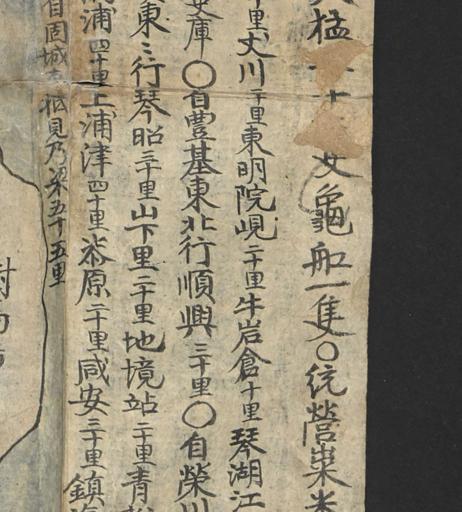 猛 龜船一隻〇統營
里丈川二十里東明院峴二十里牛岩倉十里琴湖江
庫〇自豊基東北行順興三十里〇自榮川
東〻行琴昭三十里山下里二十里地境站二十里青
浦四十里上浦津四十里漆原二十里咸安三十里鎮
自固城 見乃梁五十五里